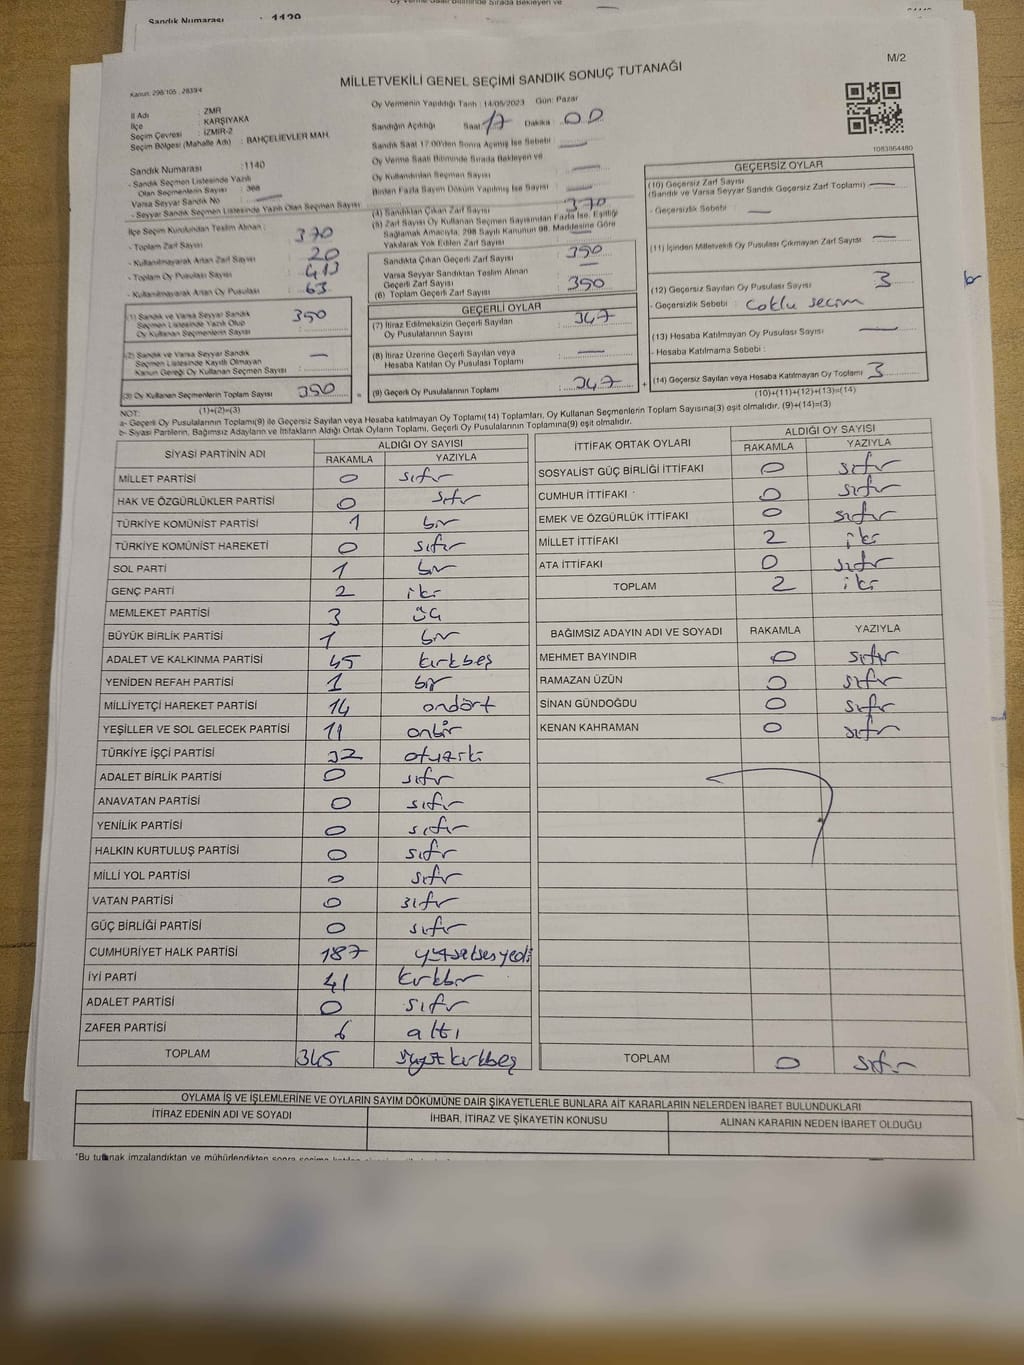 Oy Verme Saati Bitiminde Sırada Bekleyen ve
Sandık Numarası : 1139
M/2
MİLLETVEKİLİ GENEL SEÇİMİ SANDIK SONUÇ TUTANAĞI
Kanun: 298/105 , 2839/4
İl Adı : İZMİR
İlçe : KARŞIYAKA
Seçim Çevresi : İZMİR-2
Seçim Bölgesi (Mahalle Adı) : BAHÇELİEVLER MAH.
Oy Vermenin Yapıldığı Tarih : 14/05/2023 Gün: Pazar
Sandığın Açıldığı Saat 17 Dakika : 00
Sandık Saat 17:00'den Sonra Açılmış İse Sebebi :
Oy Verme Saati Bitiminde Sırada Bekleyen ve
Oy Kullandırılan Seçmen Sayısı
Birden Fazla Sayım Döküm Yapılmış İse Sayısı
1083864480
Sandık Numarası : 1140
- Sandık Seçmen Listesinde Yazılı
Olan Seçmenlerin Sayısı : 368
Varsa Seyyar Sandık No
- Seyyar Sandık Seçmen Listesinde Yazılı Olan Seçmen Sayısı
İlçe Seçim Kurulundan Teslim Alınan :
- Toplam Zarf Sayısı 370
- Kullanılmayarak Artan Zarf Sayısı 20
- Toplam Oy Pusulası Sayısı 413
- Kullanılmayarak Artan Oy Pusulası 63
(1) Sandık ve Varsa Seyyar Sandık
Seçmen Listesinde Yazılı Olup
Oy Kullanan Seçmenlerin Sayısı 350
(2) Sandık ve Varsa Seyyar Sandık
Seçmen Listesinde Kayıtlı Olmayan
Kanun Gereği Oy Kullanan Seçmen Sayısı —
(3) Oy Kullanan Seçmenlerin Toplam Sayısı 350
(1)+(2)=(3)
(4) Sandıktan Çıkan Zarf Sayısı 370
(5) Zarf Sayısı Oy Kullanan Seçmen Sayısından Fazla İse, Eşitliği
Sağlamak Amacıyla, 298 Sayılı Kanunun 98. Maddesine Göre
Yakılarak Yok Edilen Zarf Sayısı
Sandıkta Çıkan Geçerli Zarf Sayısı 350
Varsa Seyyar Sandıktan Teslim Alınan
Geçerli Zarf Sayısı —
(6) Toplam Geçerli Zarf Sayısı 350
GEÇERLİ OYLAR
(7) İtiraz Edilmeksizin Geçerli Sayılan
Oy Pusulalarının Sayısı 347
(8) İtiraz Üzerine Geçerli Sayılan veya
Hesaba Katılan Oy Pusulası Toplamı —
(9) Geçerli Oy Pusulalarının Toplamı 347
GEÇERSİZ OYLAR
(10) Geçersiz Zarf Sayısı
(Sandık ve Varsa Seyyar Sandık Geçersiz Zarf Toplamı) —
- Geçersizlik Sebebi : —
(11) İçinden Milletvekili Oy Pusulası Çıkmayan Zarf Sayısı —
(12) Geçersiz Sayılan Oy Pusulası Sayısı 3
- Geçersizlik Sebebi : Çoklu seçim
(13) Hesaba Katılmayan Oy Pusulası Sayısı —
- Hesaba Katılmama Sebebi :
(14) Geçersiz Sayılan veya Hesaba Katılmayan Oy Toplamı 3
(10)+(11)+(12)+(13)=(14)
NOT:
a- Geçerli Oy Pusulalarının Toplamı(9) ile Geçersiz Sayılan veya Hesaba katılmayan Oy Toplamı(14) Toplamları, Oy Kullanan Seçmenlerin Toplam Sayısına(3) eşit olmalıdır. (9)+(14)=(3)
b- Siyasi Partilerin, Bağımsız Adayların ve İttifakların Aldığı Ortak Oyların Toplamı, Geçerli Oy Pusulalarının Toplamına(9) eşit olmalıdır.
SİYASİ PARTİNİN ADI ALDIĞI OY SAYISI
RAKAMLA YAZIYLA
MİLLET PARTİSİ 0 sıfır
HAK VE ÖZGÜRLÜKLER PARTİSİ 0 sıfır
TÜRKİYE KOMÜNİST PARTİSİ 1 bir
TÜRKİYE KOMÜNİST HAREKETİ 0 sıfır
SOL PARTİ 1 bir
GENÇ PARTİ 2 iki
MEMLEKET PARTİSİ 3 üç
BÜYÜK BİRLİK PARTİSİ 1 bir
ADALET VE KALKINMA PARTİSİ 45 kırkbeş
YENİDEN REFAH PARTİSİ 1 bir
MİLLİYETÇİ HAREKET PARTİSİ 14 ondört
YEŞİLLER VE SOL GELECEK PARTİSİ 11 onbir
TÜRKİYE İŞÇİ PARTİSİ 32 otuziki
ADALET BİRLİK PARTİSİ 0 sıfır
ANAVATAN PARTİSİ 0 sıfır
YENİLİK PARTİSİ 0 sıfır
HALKIN KURTULUŞ PARTİSİ 0 sıfır
MİLLİ YOL PARTİSİ 0 sıfır
VATAN PARTİSİ 0 sıfır
GÜÇ BİRLİĞİ PARTİSİ 0 sıfır
CUMHURİYET HALK PARTİSİ 187 yüzseksenyedi
İYİ PARTİ 41 kırkbir
ADALET PARTİSİ 0 sıfır
ZAFER PARTİSİ 6 altı
TOPLAM 345 üçyüzkırkbeş
İTTİFAK ORTAK OYLARI ALDIĞI OY SAYISI
RAKAMLA YAZIYLA
SOSYALİST GÜÇ BİRLİĞİ İTTİFAKI 0 sıfır
CUMHUR İTTİFAKI 0 sıfır
EMEK VE ÖZGÜRLÜK İTTİFAKI 0 sıfır
MİLLET İTTİFAKI 2 iki
ATA İTTİFAKI 0 sıfır
TOPLAM 2 iki
BAĞIMSIZ ADAYIN ADI VE SOYADI RAKAMLA YAZIYLA
MEHMET BAYINDIR 0 sıfır
RAMAZAN ÜZÜN 0 sıfır
SİNAN GÜNDOĞDU 0 sıfır
KENAN KAHRAMAN 0 sıfır
TOPLAM 0 sıfır
OYLAMA İŞ VE İŞLEMLERİNE VE OYLARIN SAYIM DÖKÜMÜNE DAİR ŞİKAYETLERLE BUNLARA AİT KARARLARIN NELERDEN İBARET BULUNDUKLARI
İTİRAZ EDENİN ADI VE SOYADI İHBAR, İTİRAZ VE ŞİKAYETİN KONUSU ALINAN KARARIN NEDEN İBARET OLDUĞU
*Bu tutanak imzalandıktan ve mühürlendikten sonra